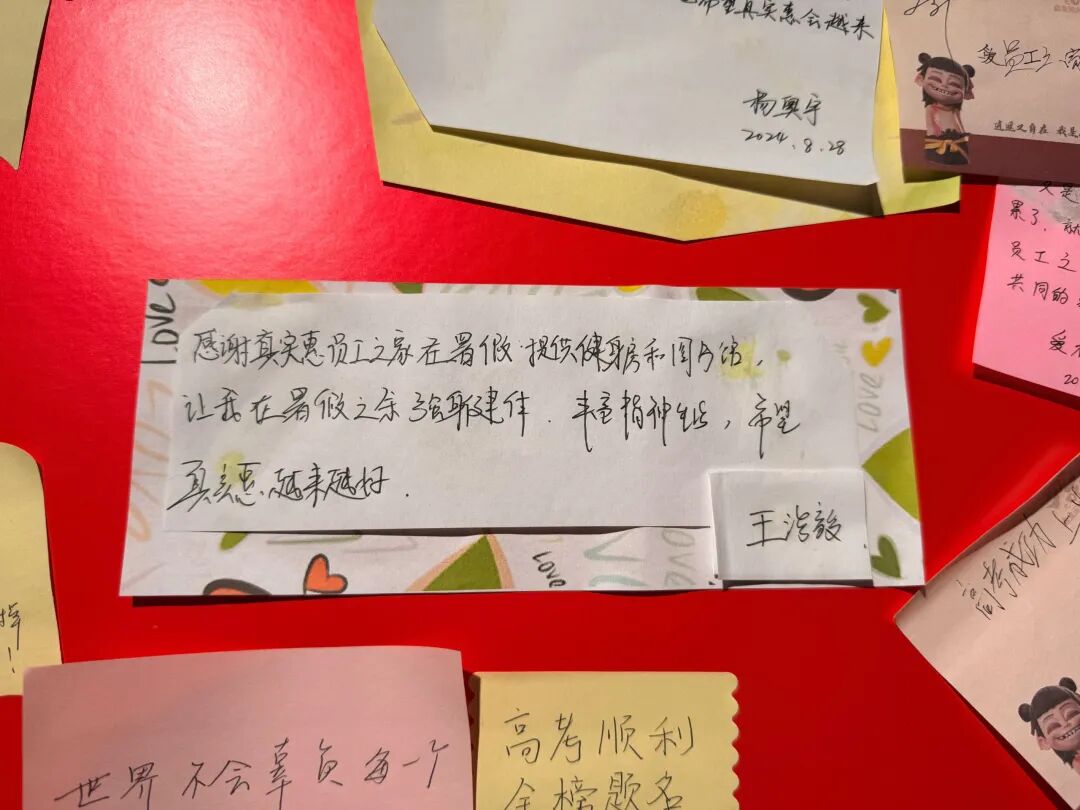 希望真实惠会越来
杨奥宇
2024.8.28
爱员工之家
逍遥又自在 我是
又是
累了,就
员工之
共同的
爱
20
Love
感谢真实惠员工之家在暑假提供健身房和图书馆,
让我在暑假之余强身健体.丰富精神生活,希望
真实惠越来越好.
王浩毅
LOVE
Love
高考成功
!
世界不会辜负每一个
高考顺利
金榜题名